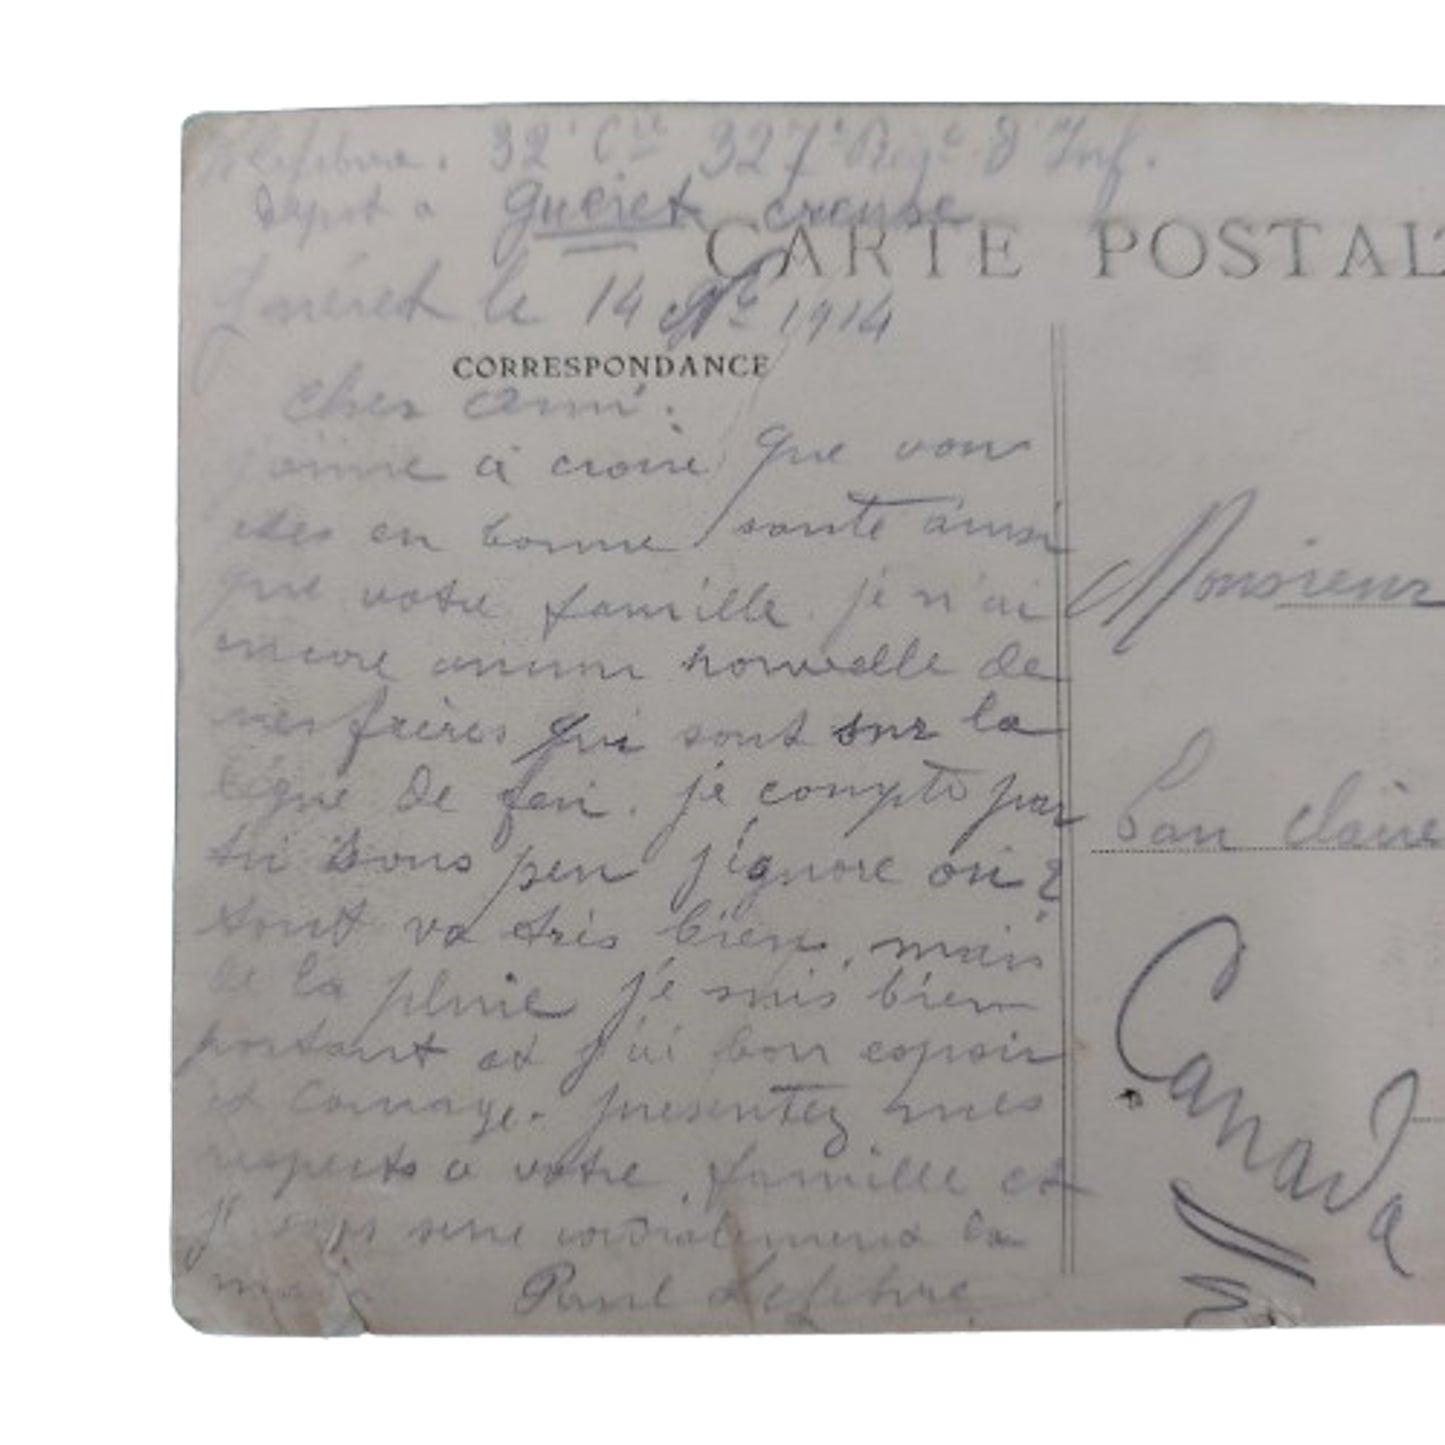 Lefebvre. 32e Cie 327e Regt d'Inf.
Depot a Guéret creuse
CARTE POSTAL
Guéret le 14 9bre 1914
CORRESPONDANCE
cher ami.
j'aime a croire que vous
etes en bonne santé ainsi
que votre famille. je n'ai
encore aucune nouvelle de
mes frères qui sont sur la
ligne de feu. je compte par
tir sous peu j'ignore ou ?
tout va très bien, mais
de la pluie je suis bien
portant et j'ai bon espoir
et courage. presentez mes
respects a votre famille et
je serre cordialement la
main Paul Lefebvre
Monsieur
San claire
Canada